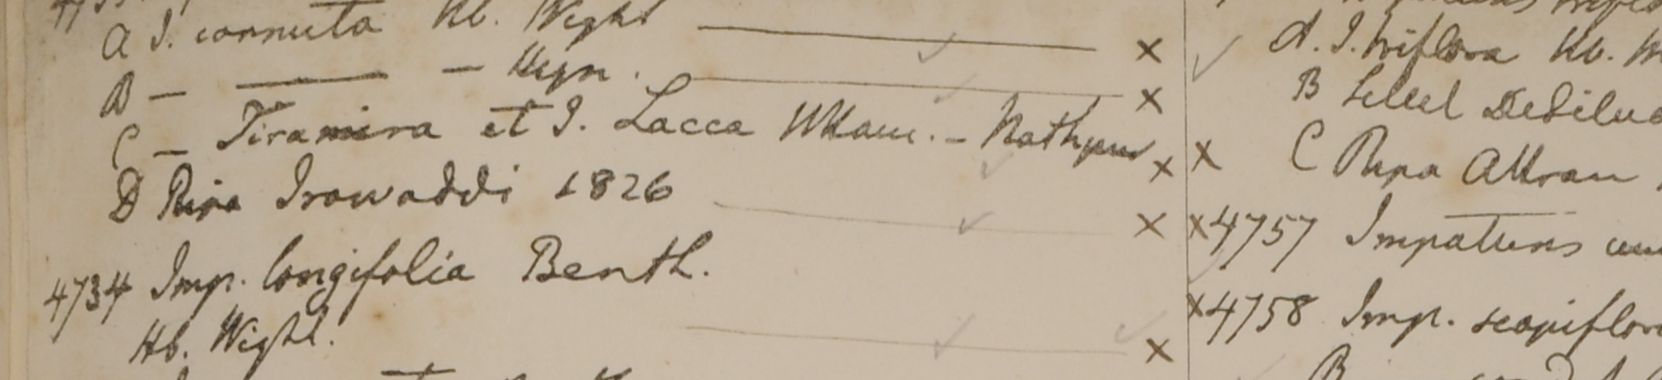 A I. cornuta Hb. Wight ——— x
B — ——— — Heyn. ——— x
C — Tiramira et I. Lacca Wkaw. - Nathpur x
D Ripa Irawaddi 1826 ——— x
4734 Imp. longifolia Benth.
Hb. Wight. ——— x
A. I. triflora Hb.
B Sillet DeSilva
x C Ripa Attran
x 4757 Impatiens
x 4758 Imp. scapiflora
B